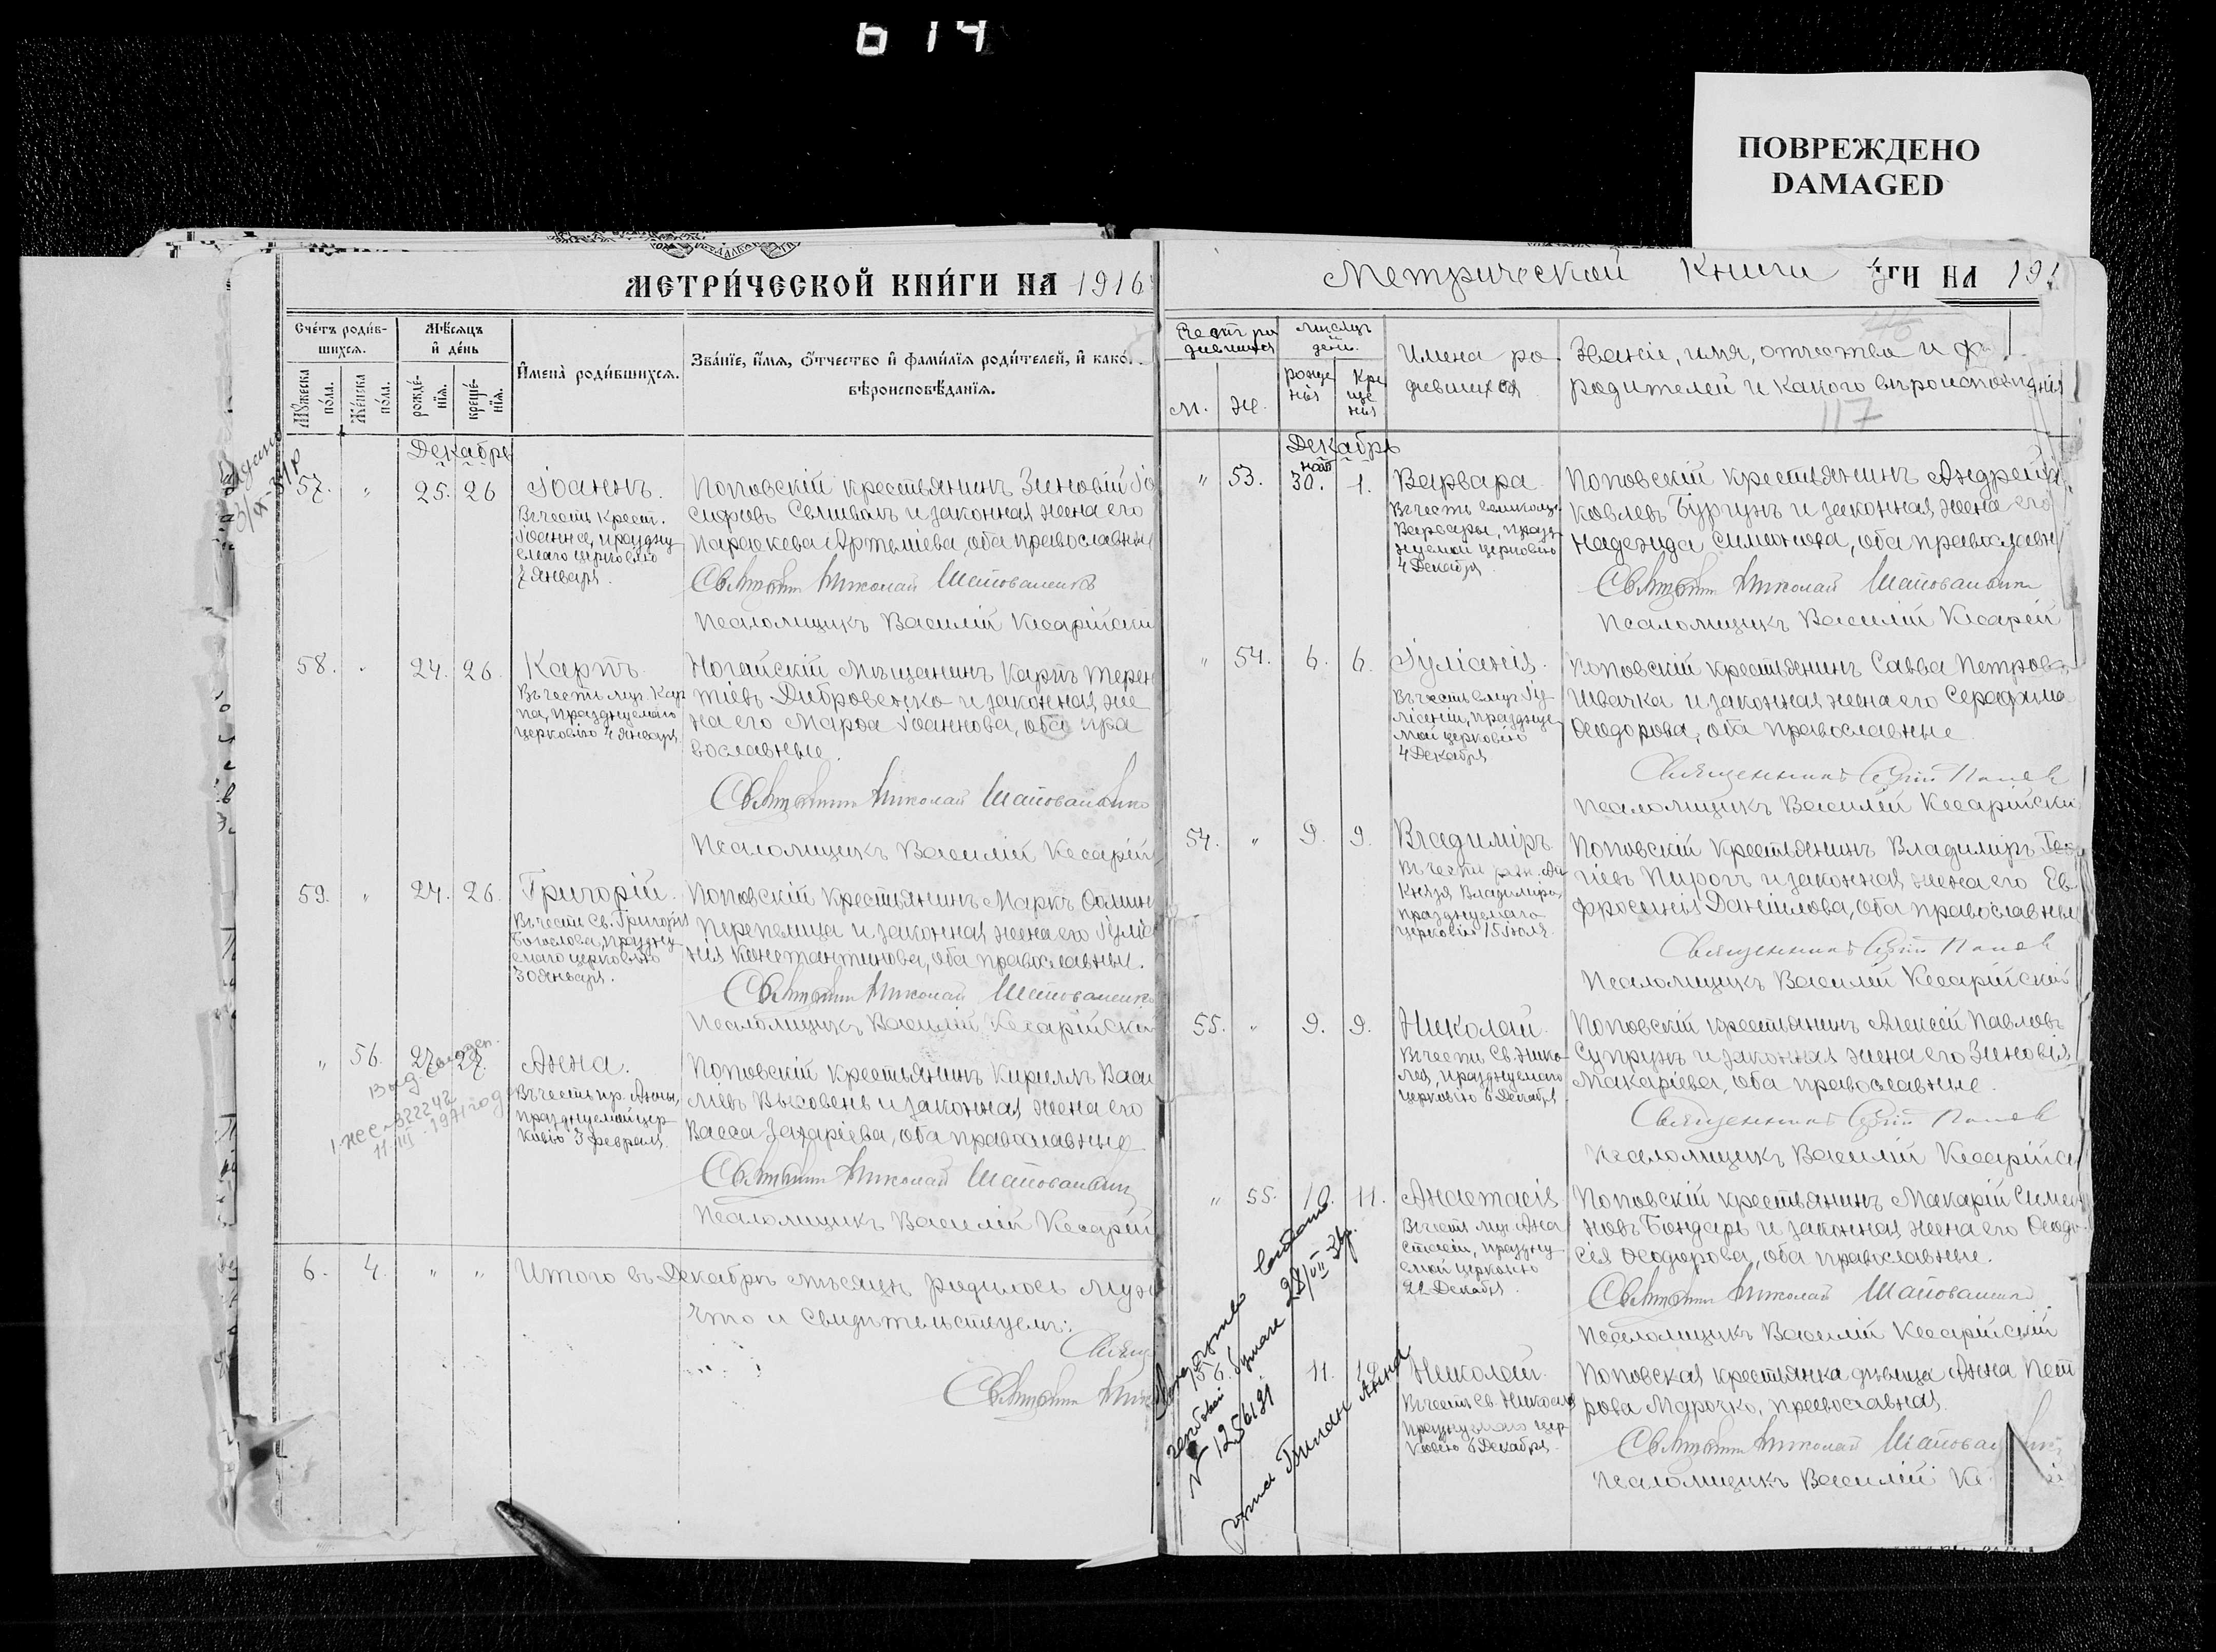 614
ПОВРЕЖДЕНО
DAMAGED
МЕТРИ́ЧЕСКОЙ КНИ́ГИ НА 1916
Сче́тъ роди́в-
шихся.
Мѣ́сяцъ
и де́нь
Мꙋжеска по́ла.
Же́нска по́ла.
рожде́-
нїя.
креще́-
нїя.
И҆мена̀ роди́вшихся.
Зва́нїе, и҆́мя, ѻ҆́тчество и҆ фами́лїя роди́телей, и҆ како́..
вѣроисповѣ́данїя.
Декабрь
57. " 25. 26
Іоаннъ.
Въ честь Крест.
Іоанна, праздну
емаго церковію
7 Января.
Поповскій крестьянинъ Зиновій Іо
сифовъ и законная жена его
Параскева Артеміева, оба православны
Николай Шаповаленко
Псаломщикъ Василій Кесарійски
58. " 24. 26.
Карпъ.
Въ честь муч. Кар
па, празднуемаго
церковію 4 Января
Ногайскій Мѣщанинъ Карпъ Терен
тіевъ Дибровенко и законная же
на его Марѳа Іоаннова, оба пра
вославные.
Николай Шаповаленко
Псаломщикъ Василій Кесарій
59. " 24. 26.
Григорій.
Въ честь Св. Григорія
Богослова, праздну
емаго церковью
30 Января.
Поповскій крестьянинъ Маркъ Ѳомин
Перепелица и законная жена его Іуліа
нія Константинова, оба православные.
Николай Шаповаленко
Псаломщикъ Василій Кесарійски
" 56. 27. 27.
1-ЖС №322242
11-III-1971 год
Анна.
Въ честь пр. Анны,
празднуемой цер
ковію 3 февраля.
Поповскій крестьянинъ Кириллъ Васи
ліевъ Высовень и законная жена его
Васса Захаріева, оба православные
Николай Шаповаленко
Псаломщикъ Василій Кесарій
6. 4. " "
Итого въ Декабрѣ мѣсяцѣ родилось муж
Что и свидѣтельствуемъ:
Метрической Книги ГИ НА 191
Счетъ ро
дившихся
мѣсяцъ
день.
М. Же.
рожде
нія
кре
ще
нія
Имена ро
дившихся
Званіе, имя, отчество и ф
родителей и какого вѣроисповѣднія
117
Декабрь
" 53. нояб 30. 1.
Варвара.
Въ честь великомуч.
Варвары, празд
нуемой церковію
4 Декабря
Поповскій крестьянинъ Андрей Я
ковлевъ Бургунъ и законная жена его
Надежда Симонова, оба православн
Николай Шаповаленко
Псаломщикъ Василій Кесарій
" 54. 6. 6.
Іуліанія.
Въ честь муч. Іу
ліаніи, празднуе
мой церковію
4 Декабря
Поповскій крестьянинъ Савва Петровъ
Швачка и законная жена его Серафима
Ѳеодорова, оба православные
Священникъ Попов
Псаломщикъ Василій Кесарійски
54. " 9. 9.
Владиміръ
Въ честь
Князя Владиміра,
празднуемаго
церковію 15 Іюля.
Поповскій крестьянинъ Владиміръ Геор
гіевъ Пирогъ и законная жена его Ев
фросинія Даніилова, оба православные
Священникъ Попов
Псаломщикъ Василій Кесарійскій
55. " 9. 9.
Николай.
Въ честь Св. Нико
лая, празднуемаго
церковію 6 Декабря
Поповскій крестьянинъ Алексій Павловъ
Супрунъ и законная жена его Зиновія
Макаріева, оба православные.
Священникъ Попов
Псаломщикъ Василій Кесарійс
" 55. 10. 11.
Анастасія
Въ честь муч. Ана
стасіи, праздну
емой церковію
22 Декабря.
Поповскій крестьянинъ Макарій Симо
новъ Бондарь и законная жена его Ѳеодо
сія Ѳеодорова, оба православные.
Николай Шаповаленко
Псаломщикъ Василій Кесарійскій
№ 1256191
Анна
11. 12.
Николай.
Въ честь Св. Николая
празднуемаго цер
ковію 6 Декабря.
Поповская крестьянка дѣвица Анна Пет
рова Марочко, православная.
Николай Шаповал
Псаломщикъ Василій Ке